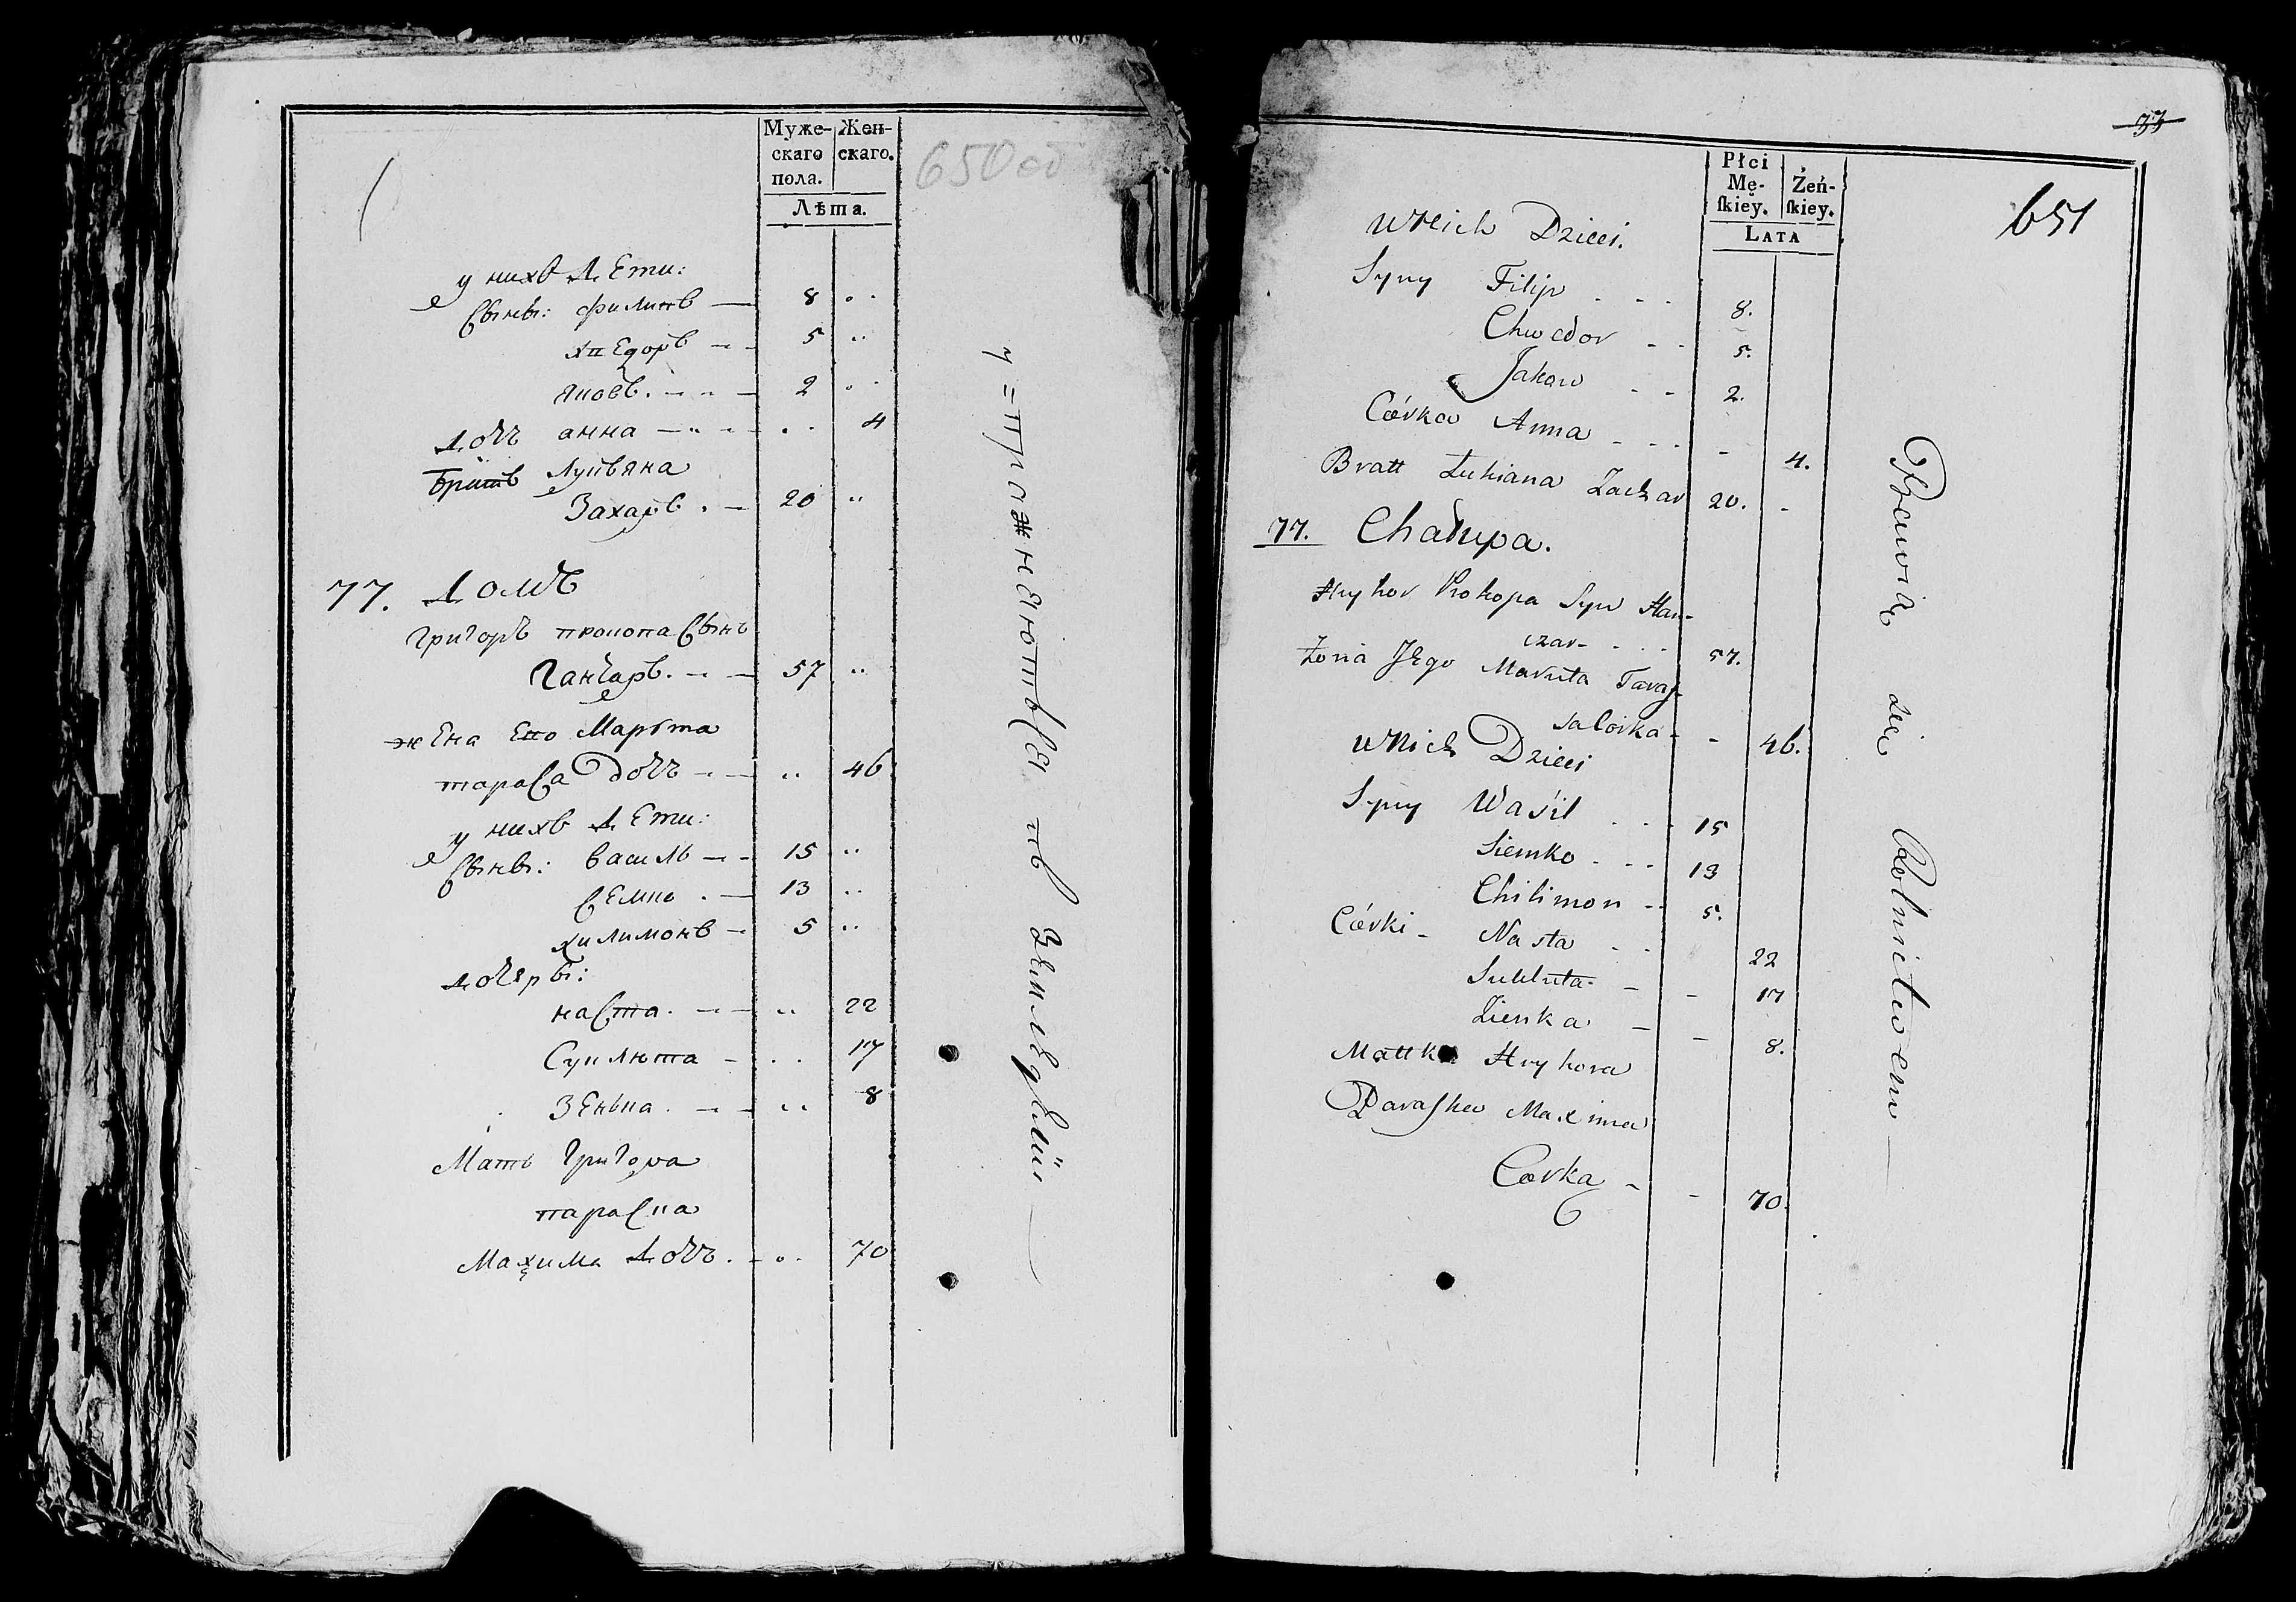 Муже-
скаго
пола.
Жен-
скаго.
Лѣта.
650 об
у нихъ дети:
Сыны: Филипъ — 8 ..
хведоръ — 5 ..
яковъ. — 2 ..
дочь анна — .. 4
братъ Лукъяна
Захаръ . — 20 ..
77. домъ
Григоръ прокопа Сынъ
Ганчаръ. — 57 ..
жена Его Марута
тараса дочь — .. 46
у нихъ дети:
Сыны: василь — 15 ..
семко . — 13 ..
хилимонъ — 5 ..
дочери:
наста. — .. 22
Суклюта — .. 17
Зенька. — .. 8
Мать Григора
параска
Махима дочь. — .. 70
упражняютъся въ земледелии
33
651
Płci
Mę-
skiey.
Żeń-
skiey.
LATA
u Nich Dzieci.
Syny Filip - - - 8.
Chwedor - - 5.
Jakow - - 2.
Córka Anna - - - - 4.
Bratt Łukiana Zachar 20. -
77. Chałupa.
Hryhor Prokopa Syn Han-
czar - - - 57.
Żona Jego Maruta Taras-
salowka - - 46.
u Nich Dzieci
Syny Waśil - - - 15
Siemko - - - 13
Chilimon - - 5.
Córki - Nasta - - 22
Sukluta - - 17
Zienka - - 8.
Mattka Hryhora
Paraska Maxima
Corka - - 70.
Bawią się Rolnictwem —